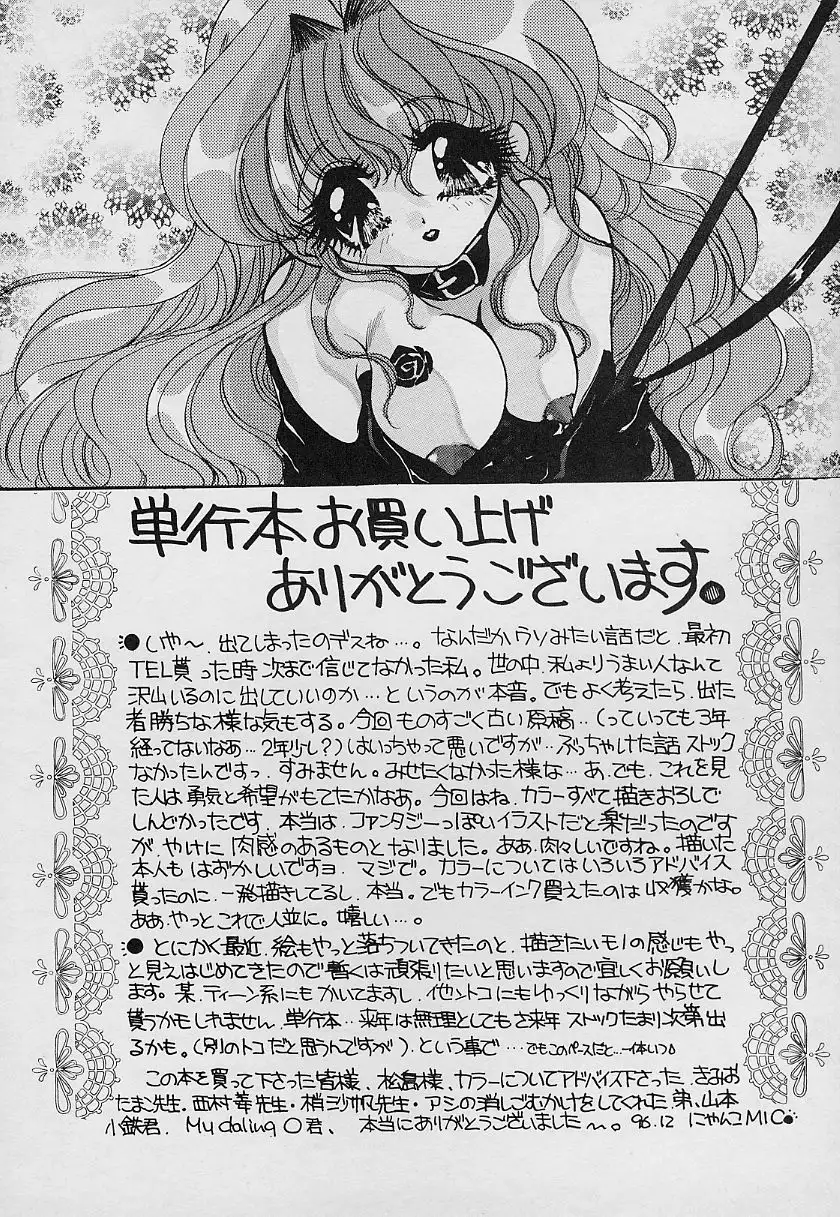 単行本お買い上げ
ありがとうございます。
●しや〜、出てしまったのデスね…。なんだかウソみたい話だと、最初
TEL貰った時 次まで信じてなかった私。世の中、私よりうまい人なんて
沢山いるのに出していいのか…というのが本音。でもよく考えたら、出た
者勝ちな様な気もする。今回ものすごく古い原稿‥(っていっても3年
経ってないなあ…2年少し?)はいっちゃって悪いですが‥ぶっちゃけた話ストック
なかったんですっ、すみません。みせたくなかった様な…あ、でも、これを見
た人は勇気と希望がもてたかなあ。今回はね、カラーすべて描きおろしで
しんどかったです、本当は、ファンタジーっぽいイラストだと楽だったのです
が、やけに肉感のあるものとなりました。ああ、肉々しいですね。描いた
本人もはずかしいですヨ、マジで。カラーについてはいろいろアドバイス
貰ったのに、一発描きしてるし、本当。でもカラーインク買えたのは収獲かな。
ああ、やっとこれで人並に。嬉しい…。
●とにかく最近、絵もやっと落ちついてきたのと、描きたいモノの感じもやっ
と見えはじめてきたので暫くは頑張りたいと思いますので宜しくお願いし
ます。某、ティーン系にもかいてますし、他ントコにもゆっくりながらやらせて
貰うかもしれません、単行本‥来年は無理としてもさ来年ストックたまり次第出
るかも。(別のトコだと思うんですが)、という事で…でもこのペースだと…一体いつ
この本を買って下さった皆様、松島様、カラーについてアドバイス下さった、きみお
たまこ先生・西村 先生・梢沙帆先生・アシの消しごむかけをしてくれた弟、山本
小鉄君、My daling O君、本当にありがとうございました〜。96.12 にゃんこMIC